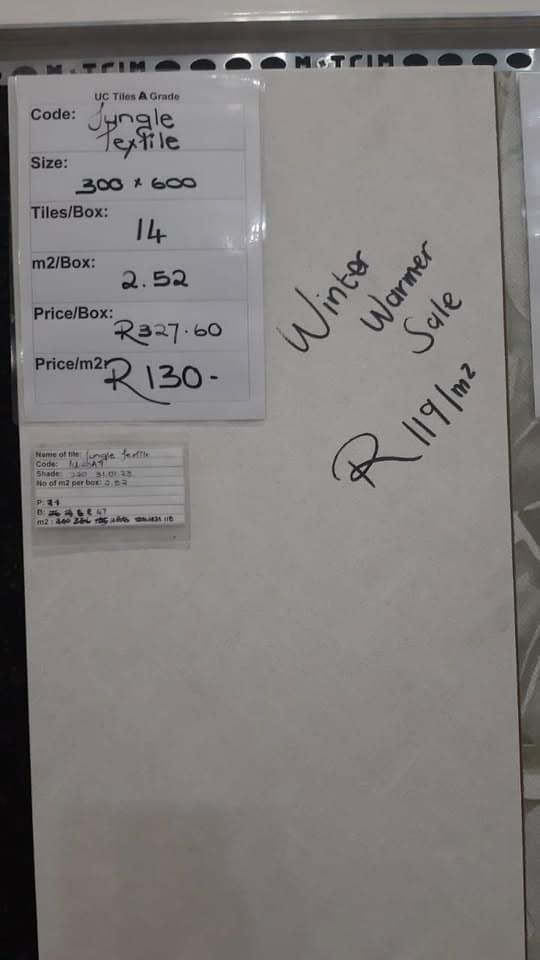 M TRIM
M TRIM
UC Tiles A Grade
Code: Jungle
Textile
Size:
300 x 600
Tiles/Box:
14
m2/Box:
2.52
Price/Box:
R327.60
Price/m2:
R130-
Winter
Warmer
Sale
R119/m2
Name of tile: Jungle Textile
Code:
Shade: 31.01.23
No of m2 per box: 2.52
P:
B: 47
m2: 118